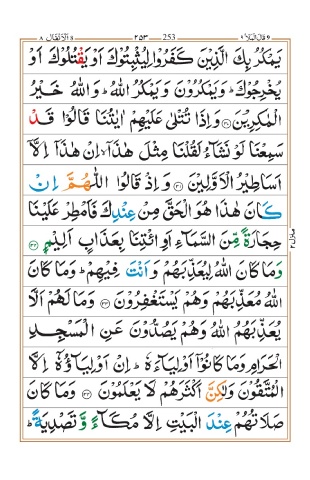 قال الملا ٩ 253 ٢٥٣ الانفال ٨
يَمْكُرُ بِكَ الَّذِيْنَ كَفَرُوْا لِيُثْبِتُوْكَ اَوْ يَقْتُلُوْكَ اَوْ
يُخْرِجُوْكَ ؕ وَيَمْكُرُوْنَ وَيَمْكُرُ اللّٰهُ ؕ وَاللّٰهُ خَيْرُ
الْمٰكِرِيْنَ ﴿۳۰﴾ وَاِذَا تُتْلٰى عَلَيْهِمْ اٰيٰتُنَا قَالُوْا قَدْ
سَمِعْنَا لَوْ نَشَآءُ لَقُلْنَا مِثْلَ هٰذَاۤ ۙ اِنْ هٰذَاۤ اِلَّاۤ
اَسَاطِيْرُ الْاَوَّلِيْنَ ﴿۳۱﴾ وَاِذْ قَالُوا اللّٰهُمَّ اِنْ
كَانَ هٰذَا هُوَ الْحَقَّ مِنْ عِنْدِكَ فَاَمْطِرْ عَلَيْنَا
حِجَارَةً مِّنَ السَّمَآءِ اَوِ ائْتِنَا بِعَذَابٍ اَلِيْمٍ ﴿۳۲﴾
وَمَا كَانَ اللّٰهُ لِيُعَذِّبَهُمْ وَاَنْتَ فِيْهِمْ ؕ وَمَا كَانَ
اللّٰهُ مُعَذِّبَهُمْ وَهُمْ يَسْتَغْفِرُوْنَ ﴿۳۳﴾ وَمَا لَهُمْ اَلَّا
يُعَذِّبَهُمُ اللّٰهُ وَهُمْ يَصُدُّوْنَ عَنِ الْمَسْجِدِ
الْحَرَامِ وَمَا كَانُوْۤا اَوْلِيَآءَهٗ ؕ اِنْ اَوْلِيَآؤُهٗۤ اِلَّا
الْمُتَّقُوْنَ وَلٰكِنَّ اَكْثَرَهُمْ لَا يَعْلَمُوْنَ ﴿۳۴﴾ وَمَا كَانَ
صَلَاتُهُمْ عِنْدَ الْبَيْتِ اِلَّا مُكَآءً وَّتَصْدِيَةً ؕ